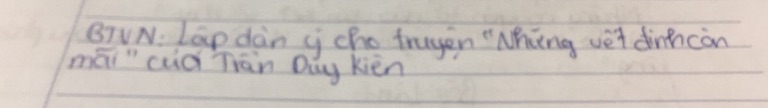 BTVN: Lập dàn ý cho truyện "Những vết đinh còn
mãi" của Trần Duy Kiên